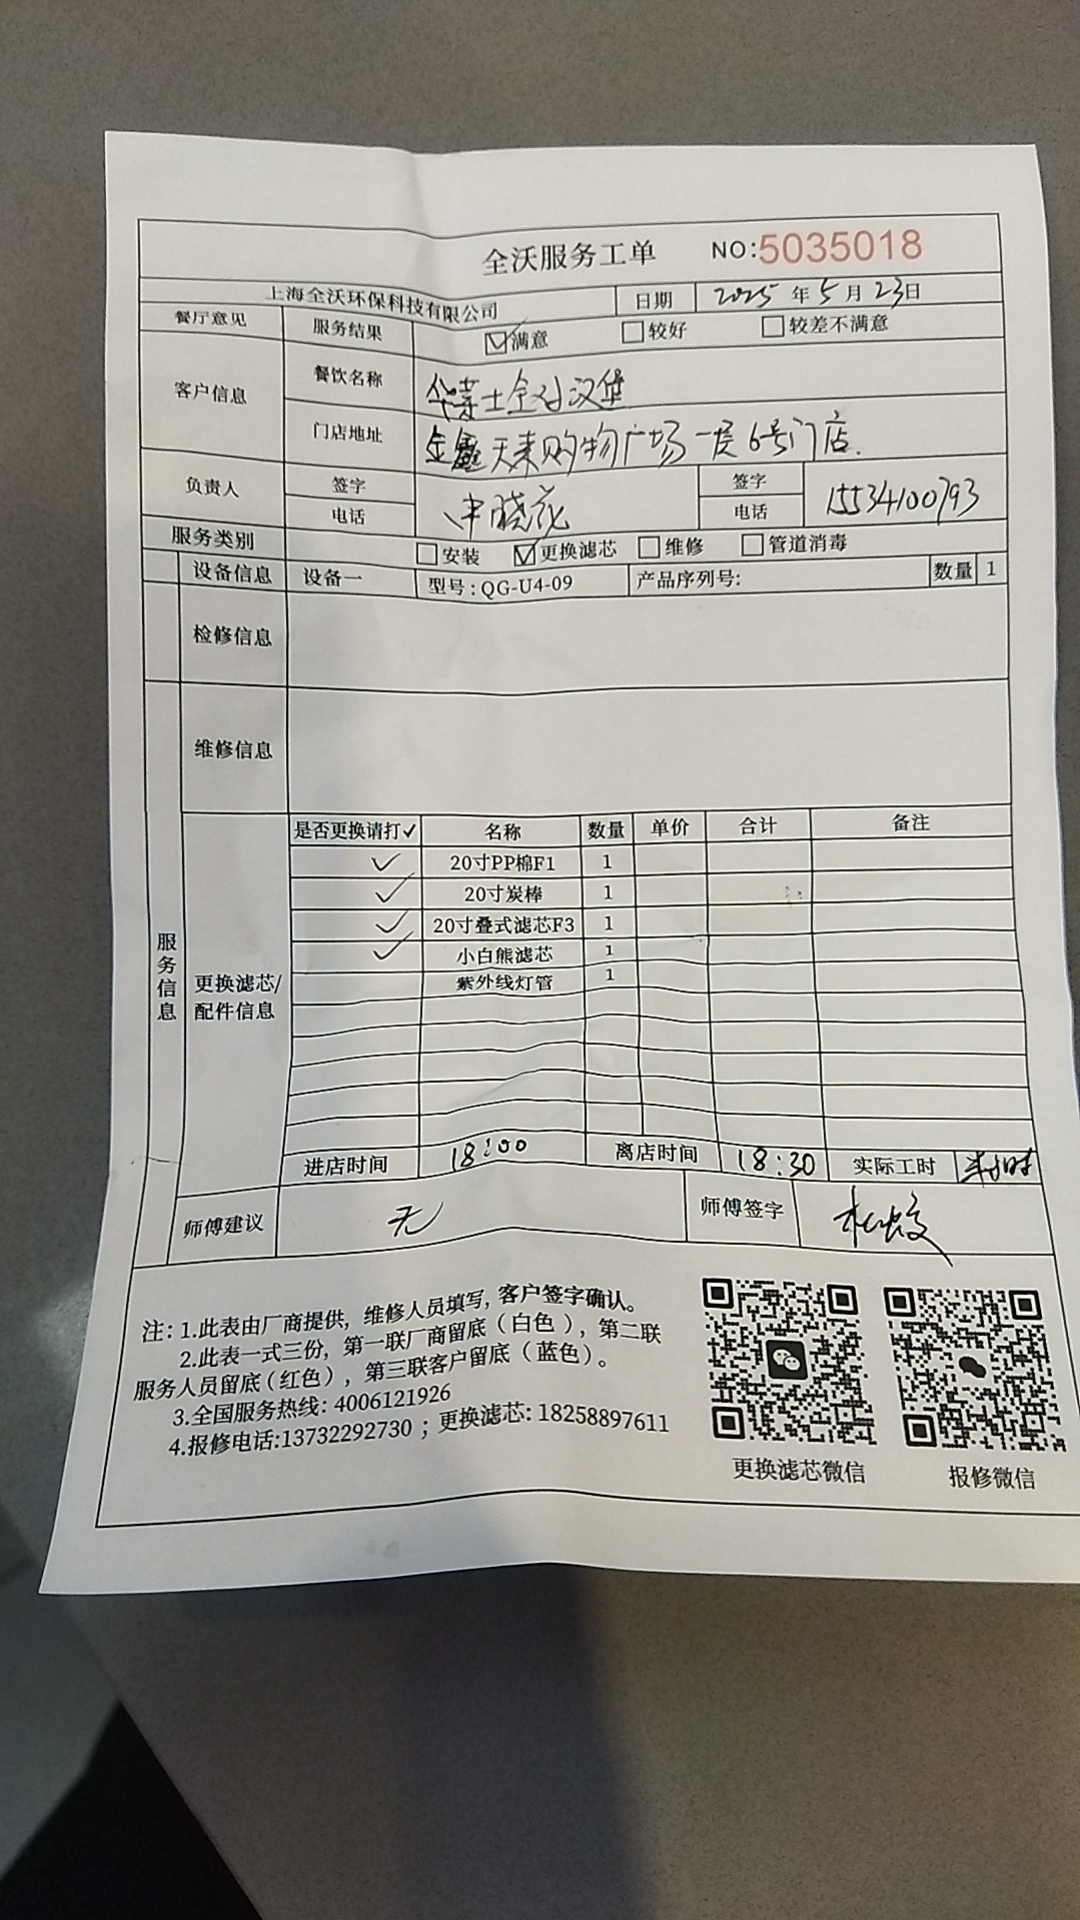 全沃服务工单 NO:5035018
上海全沃环保科技有限公司 日期 2025年5月23日
餐厅意见 服务结果 满意 较好 较差不满意
客户信息 餐饮名称 华莱士全鸡汉堡
门店地址 金鑫天来购物广场一层6号门店.
负责人 签字 申晓花 签字
电话 电话 15534100793
服务类别 安装 更换滤芯 维修 管道消毒
设备信息 设备一 型号:QG-U4-09 产品序列号: 数量 1
检修信息
维修信息
服务信息
更换滤芯/配件信息
是否更换请打✓ 名称 数量 单价 合计 备注
✓ 20寸PP棉F1 1
✓ 20寸炭棒 1
✓ 20寸叠式滤芯F3 1
✓ 小白熊滤芯 1
紫外线灯管 1
进店时间 18:00 离店时间 18:30 实际工时 半小时
师傅建议 无 师傅签字
注: 1.此表由厂商提供, 维修人员填写, 客户签字确认。
2.此表一式三份, 第一联厂商留底(白色), 第二联
服务人员留底(红色), 第三联客户留底(蓝色)。
3.全国服务热线: 4006121926
4.报修电话:13732292730 ; 更换滤芯: 18258897611
更换滤芯微信 报修微信